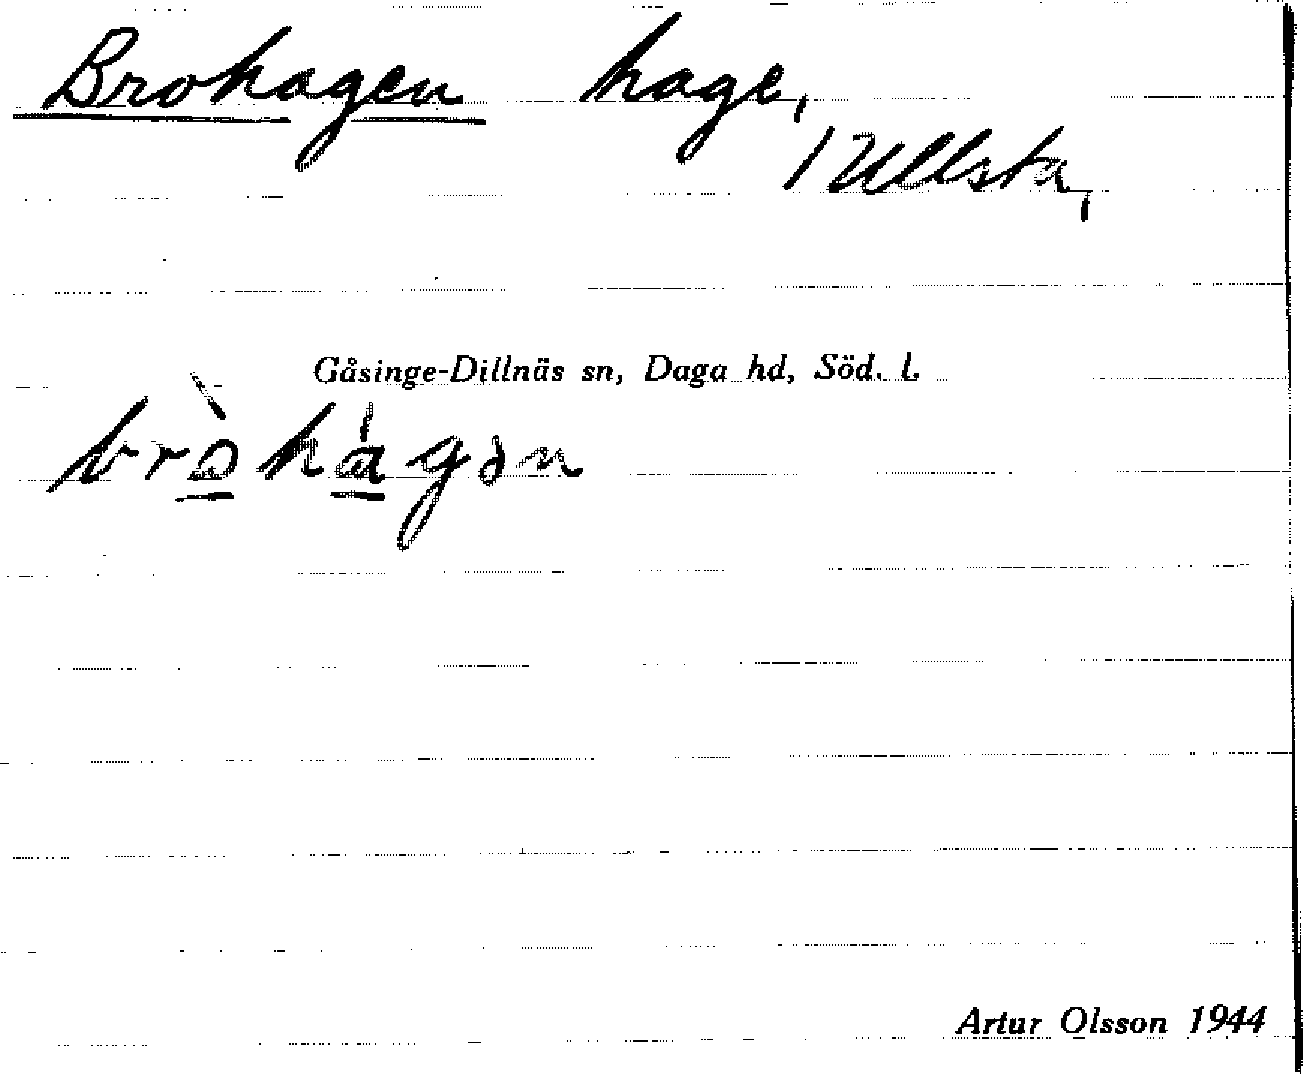 Brohagen hage,
1 Ullsta,
Gåsinge-Dillnäs sn, Daga hd, Söd. l.
bròhágən
Artur Olsson 1944